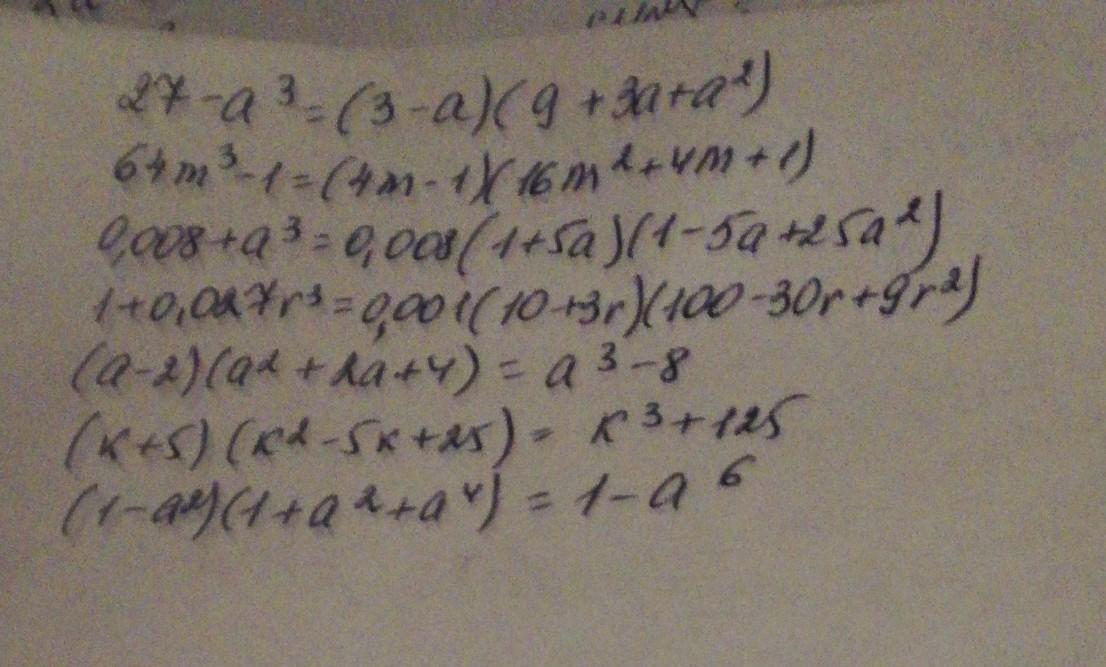 27-a³=(3-a)(9+3a+a²)
64m³-1=(4m-1)(16m²+4m+1)
0,008+a³=0,008(1+5a)(1-5a+25a²)
1+0,027r³=0,001(10+3r)(100-30r+9r²)
(a-2)(a²+2a+4)=a³-8
(к+5)(к²-5к+25)=к³+125
(1-a²)(1+a²+a⁴)=1-a⁶